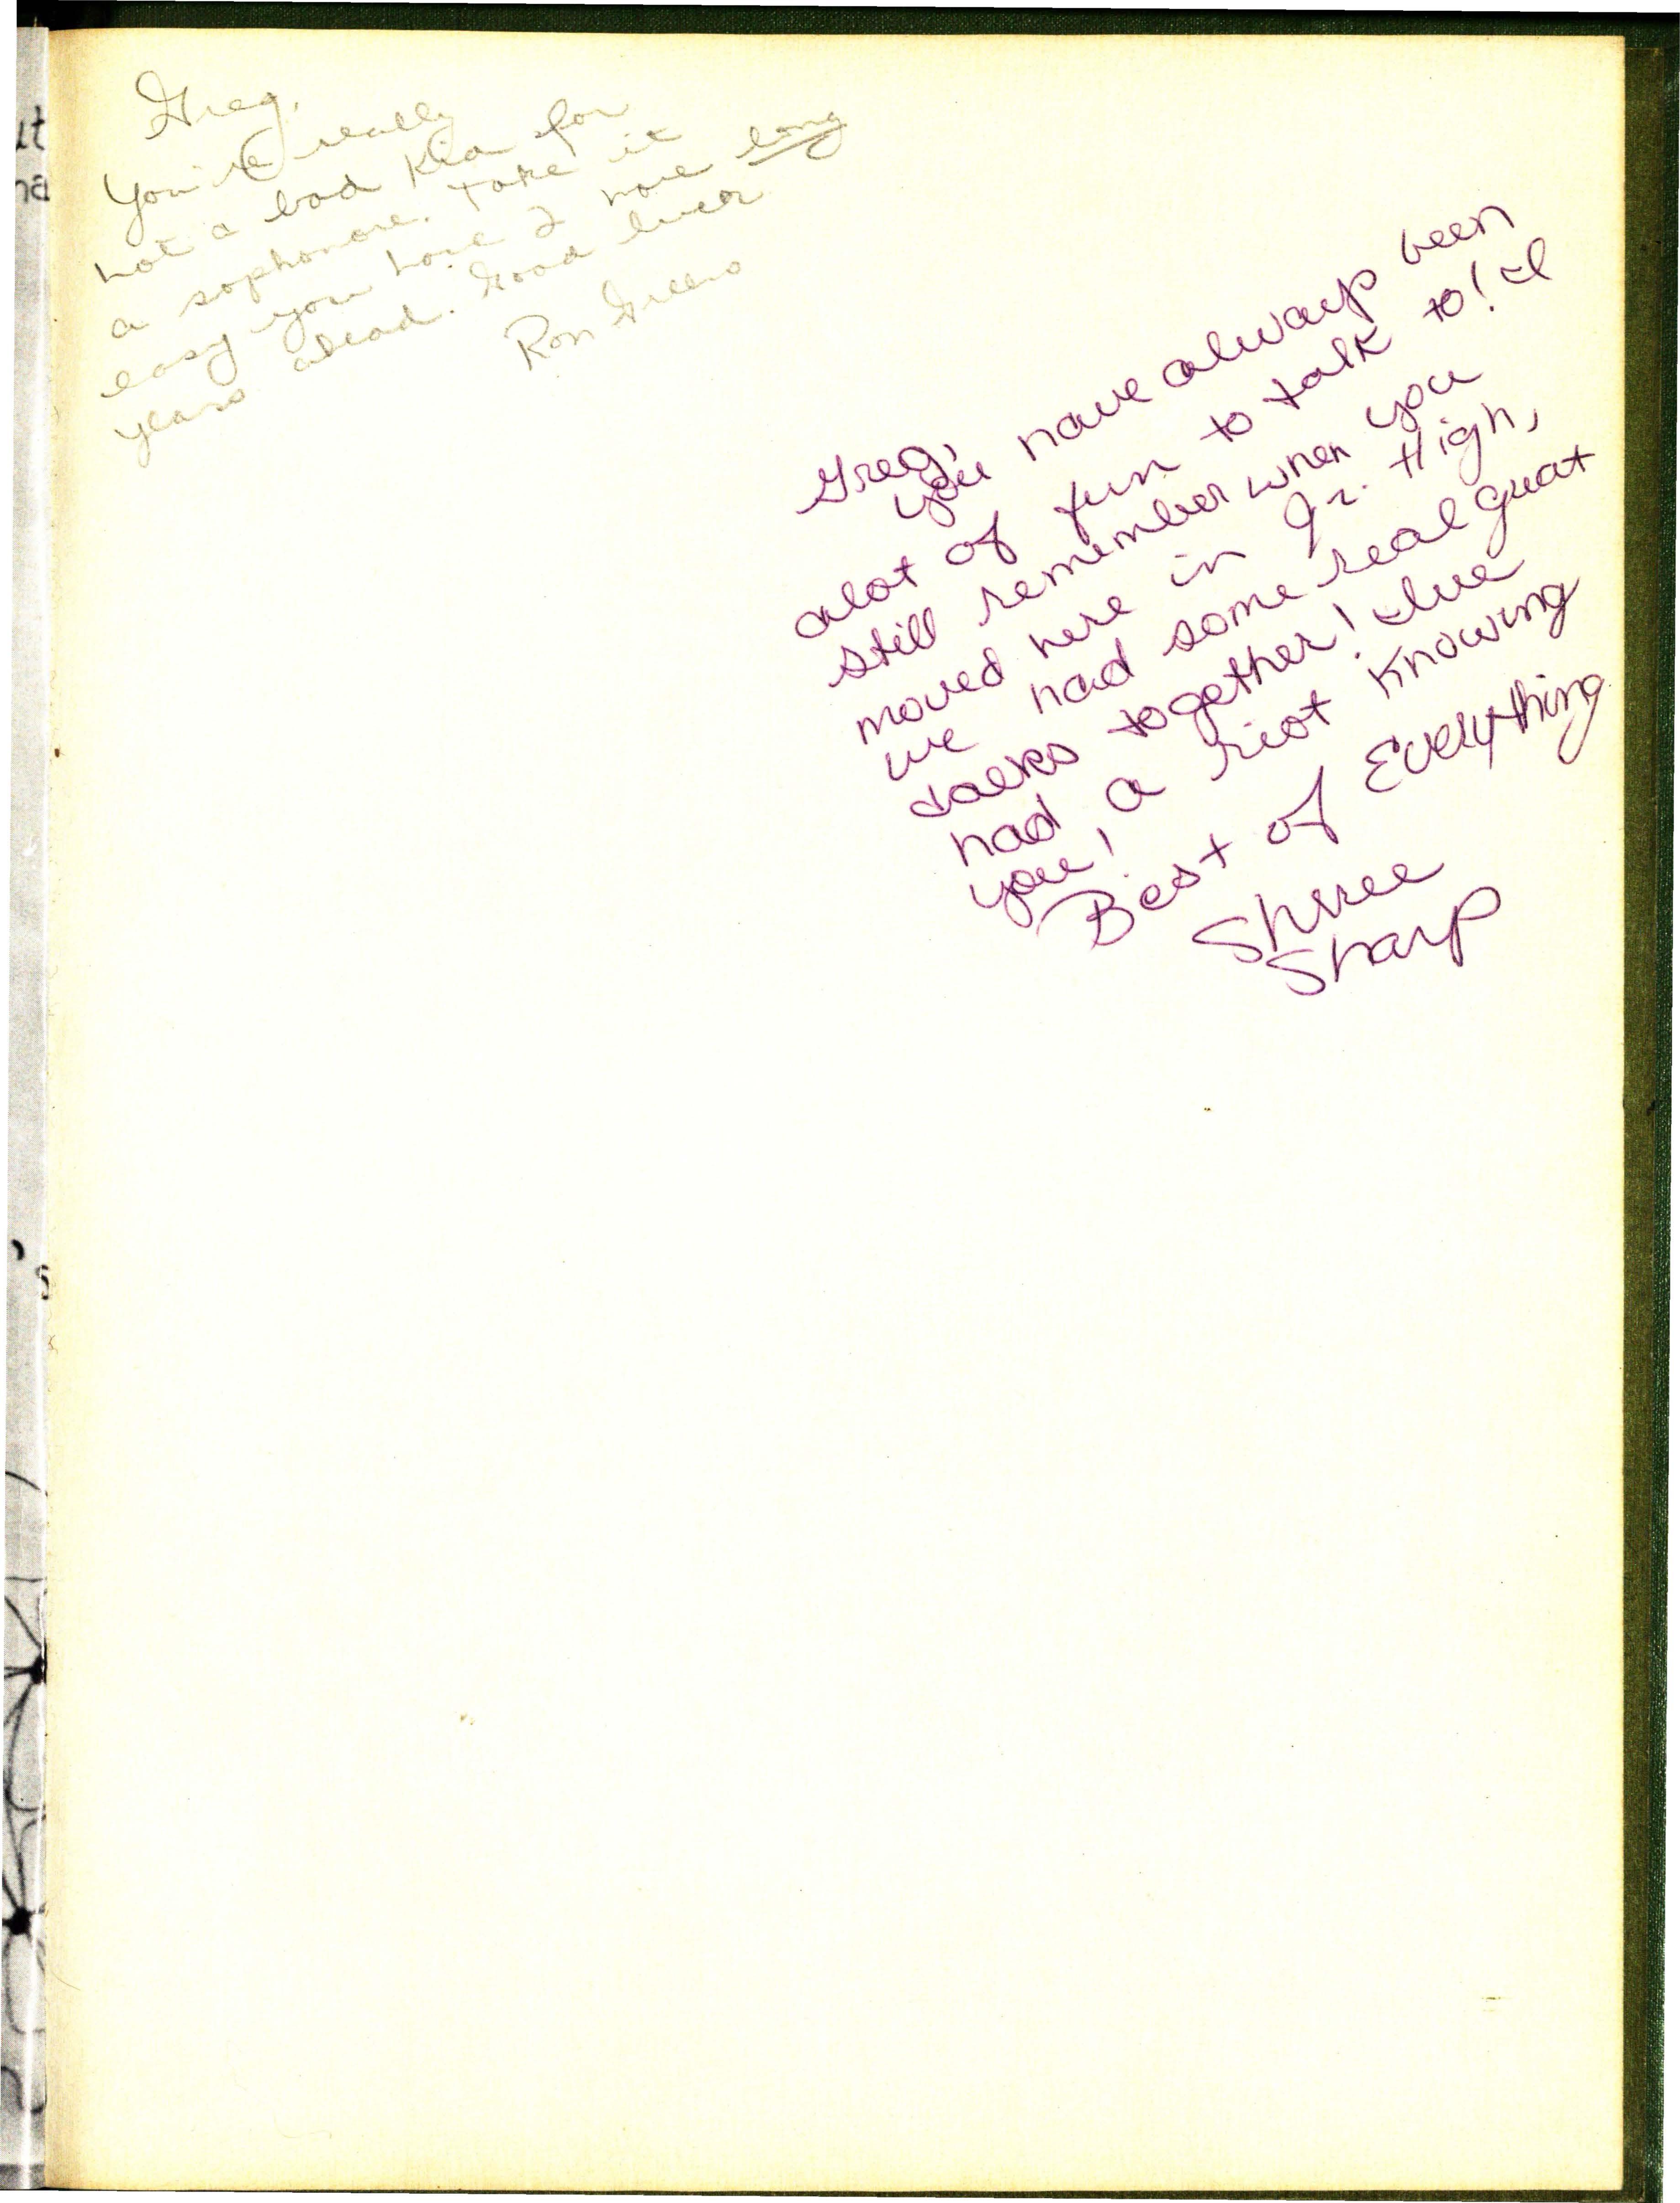 Greg,
You're really
not a bad kid for
a sophomore. Take it
easy you have 2 more long
years ahead. Good luck
Ron
Greg,
you have always been
alot of fun to talk to! I
still remember when you
moved here in Jr. High,
we had some real great
talks together! I've
had a riot knowing
you!
Best of Everything
Sharp
ut
na
's